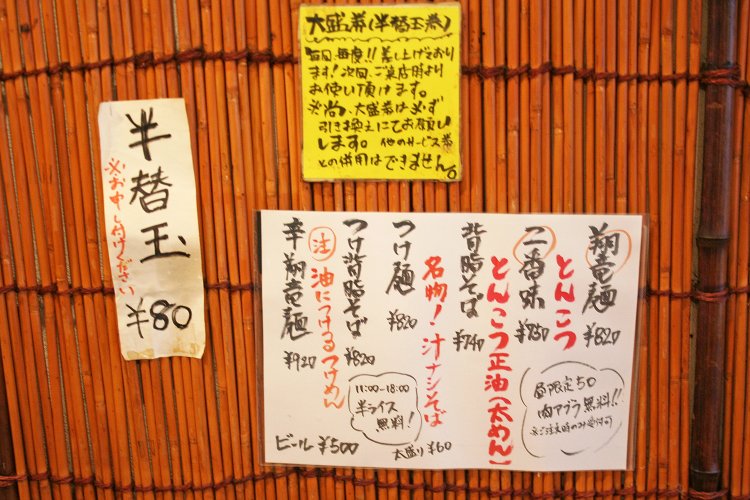 大盛券(半替玉券)
毎回毎度!!差し上げており
ます!次回ご来店時より
お使い頂けます。
※尚、大盛券は必ず
引き換えにてお願い
します。他のサービス券
との併用はできません。
半替玉
※お申し付けください
¥80
翔竜麺
¥820
とんこつ
二番味
¥750
とんこつ正油(太めん)
背脂そば
¥740
名物!汁ナシそば
つけ麺
¥820
つけ背脂そば
¥820
注 油につけるつけめん
辛翔竜麺
¥920
昼限定50
肉アブラ無料!!
※ご注文時のみ受付可
11:00-18:00
半ライス
無料!
大盛り ¥60
ビール ¥500